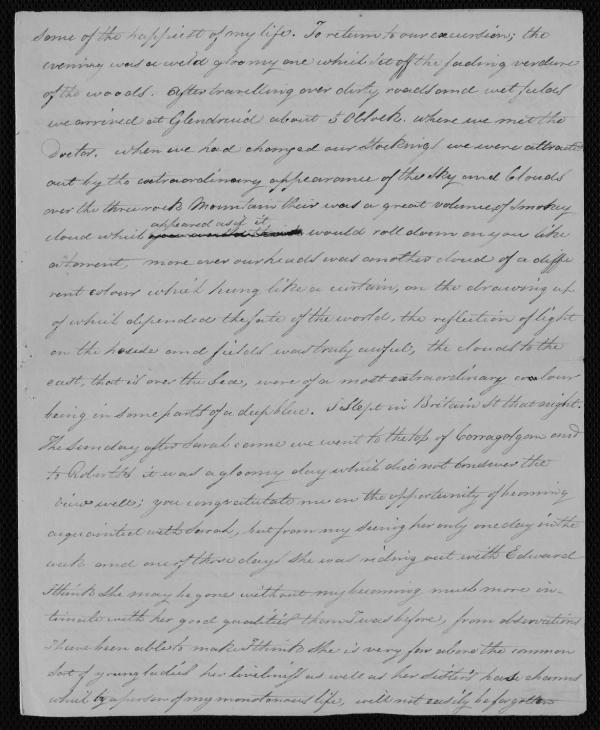 some of the happiest of my life. To return to our excursion; the
evening was a wild gloomy one which set off the fading verdure
of the woods. After travelling over dirty roads and wet fields
we arrived at Glendruid about 5 OClock. where we met the
Doctor. when we had changed our stockings we were attracted
out by the extraordinary appearance of the Sky and Clouds
over the three rock Mountain their was a great volume of smokey
appeared as if it
cloud which would roll down on you like
a torrent, more over our heads was another cloud of a diffe
rent colour which hung like a curtain, on the drawing up
of which depended the fate of the world, the reflection of light
on the house and fields was truly awful, the clouds to the
east, that is over the Sea, were of a most extraordinary colour
being in some parts of a deep blue. I Slept in Britain St that night.
The Sunday after Sarah came we went to the top of Corragolgon and
to Roberts's it was a gloomy day which did not
view well; you congratulate me on the opportunity of becoming
acquainted with Sarah, but from my seeing her only one day in the
week and one of those days she was riding out with Edward
I think she may be gone without my becoming much more in-
timate with her good qualities than I was before, from observations
I have been able to make I think she is very far above the common
sort of young ladies her liveliness as well as her sisters has charms
which by a person of my monotonous life, will not easily be forgotten